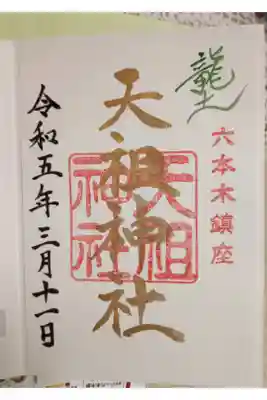 龍土
六本木鎮座
天祖神社
天祖
神社
令和五年三月十一日